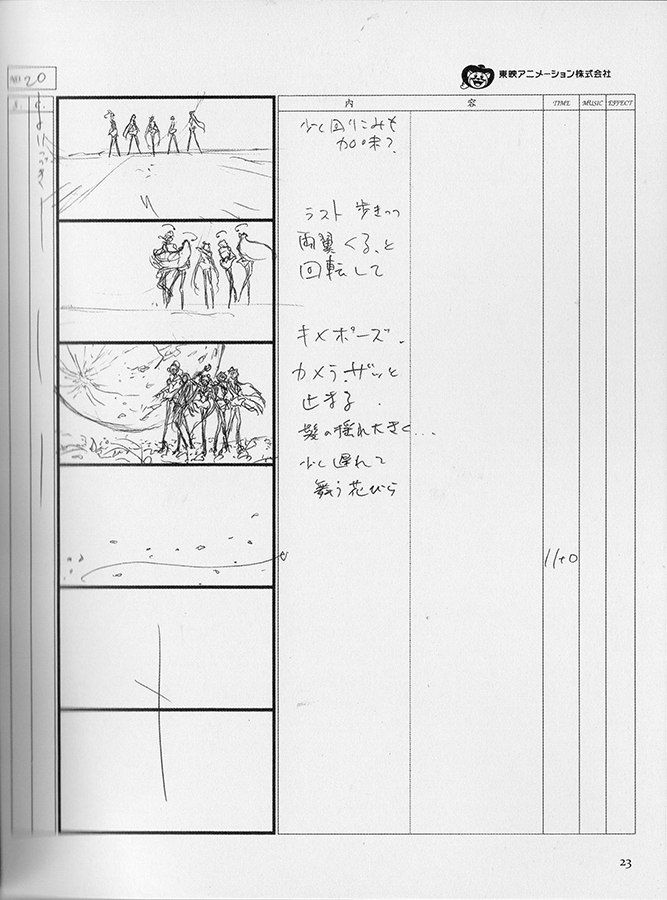 東映アニメーション株式会社
No. 20
内 容 TIME MUSIC EFFECT
少し回りこみも
加味?
ラスト 歩きつつ
両翼 くるっと
回転して
キメポーズ.
カメラ.ザッと
止まる.
髪の揺れ大きく...
少し遅れて
舞う花びら
11+0
23